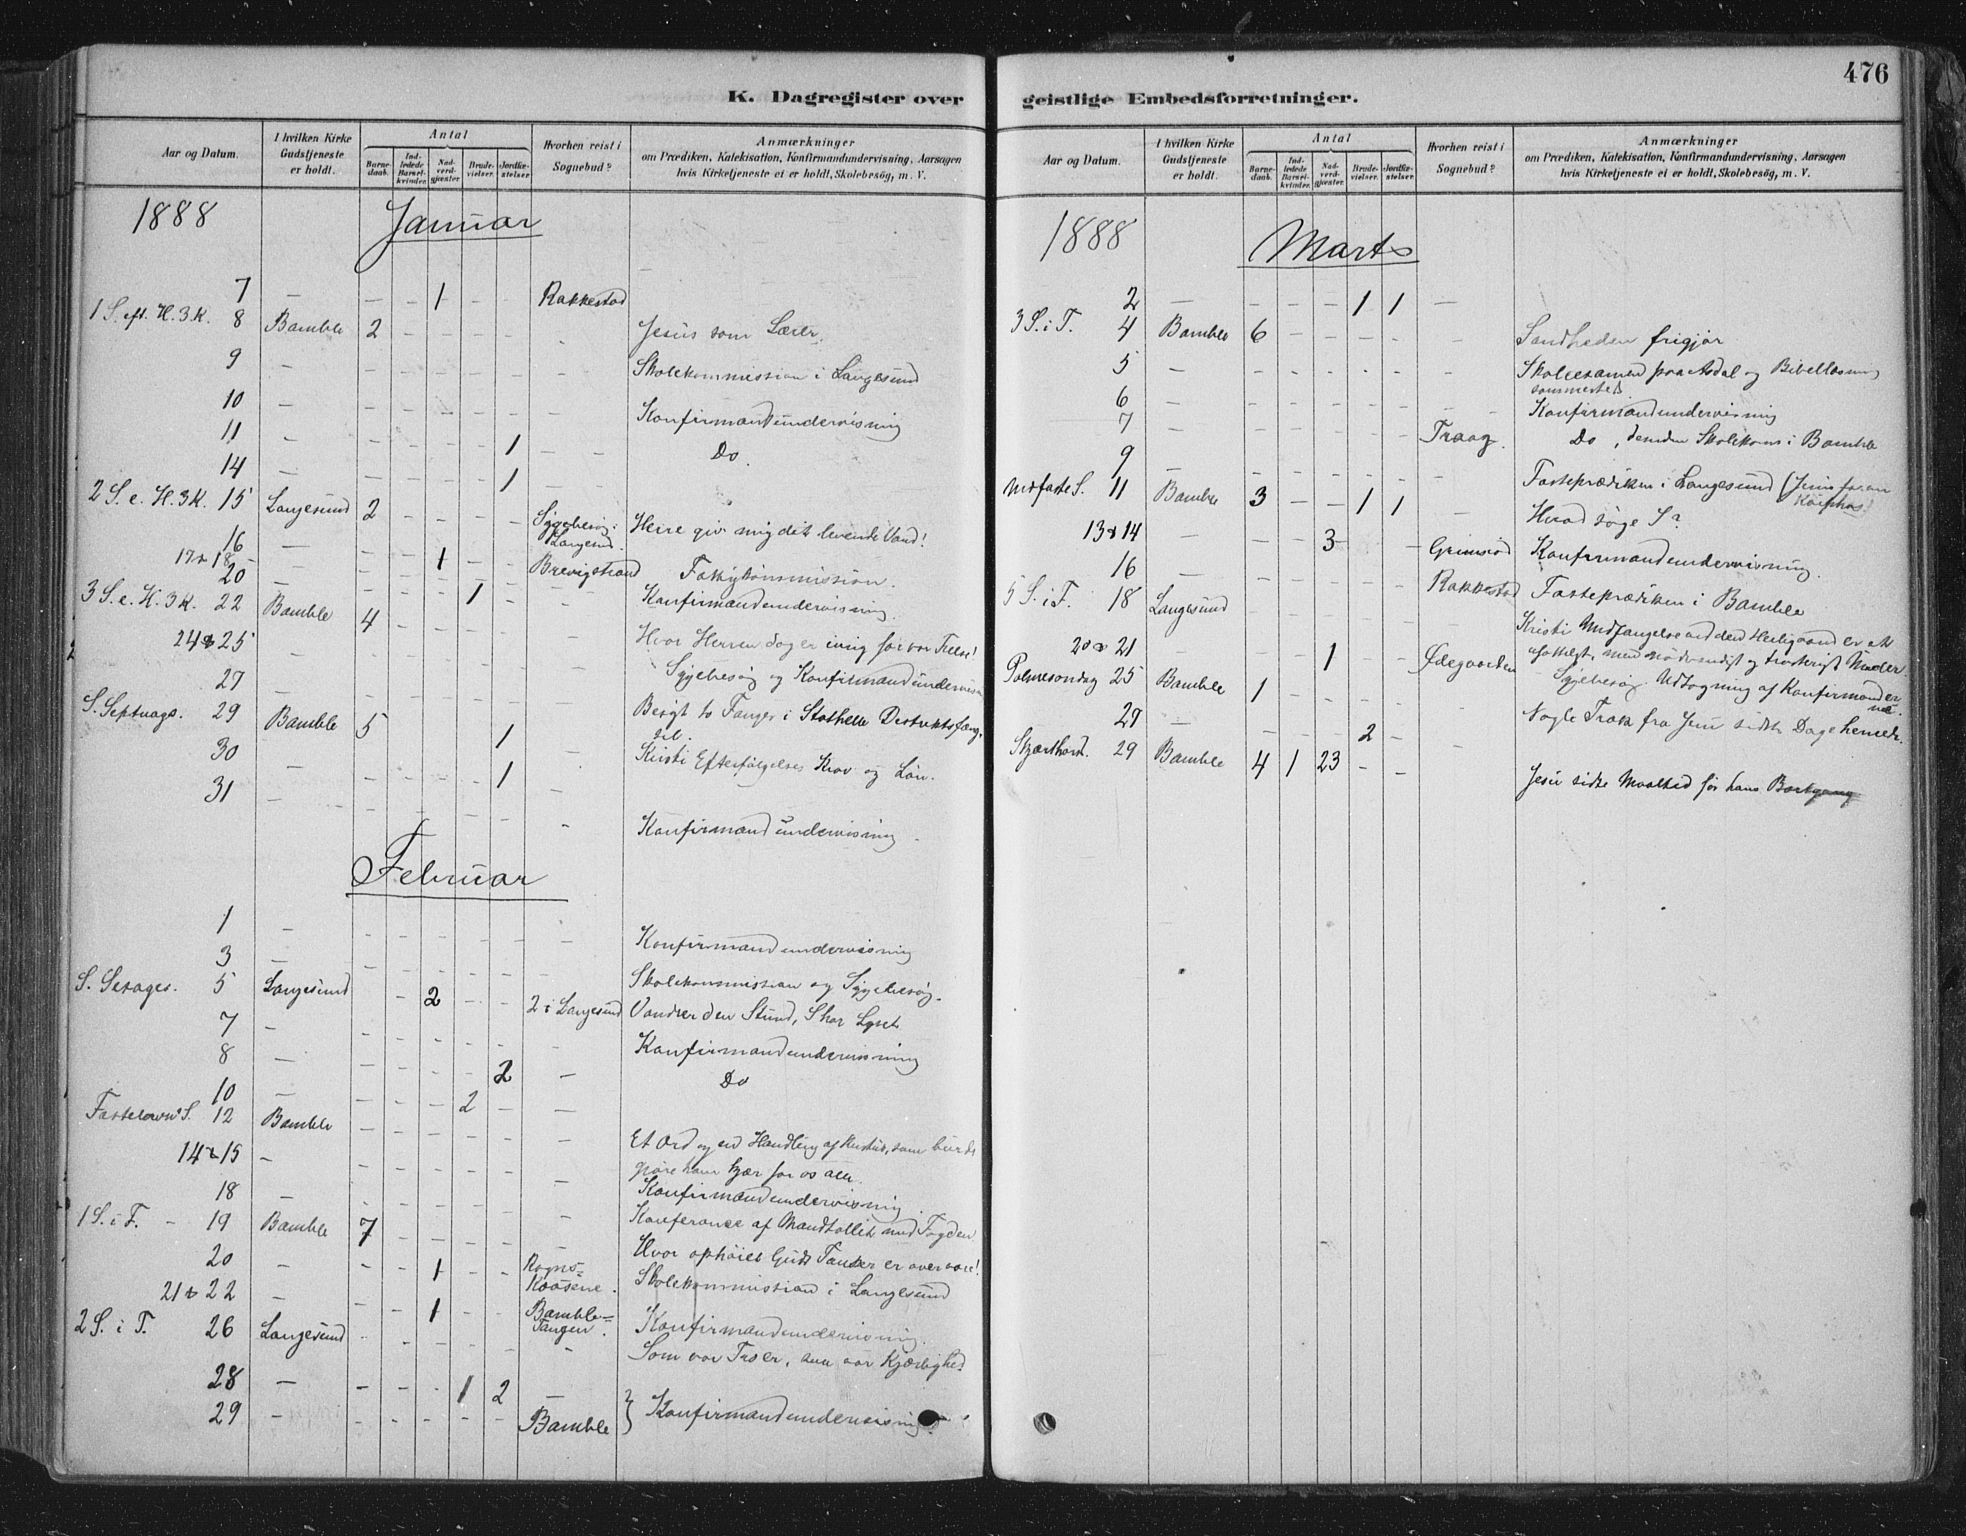 K. Dagregister over
Aar og Datum.
I hvilken Kirke Gudstjeneste er holdt.
Antal
Barnedaab.
Indledede Barselkvinder.
Nadverdgjester.
Brudevielser.
Jordfæstelser.
Hvorhen reist i Sognebud?
Anmærkninger
om Prædiken, Katekisation, Konfirmandundervisning, Aarsagen
hvis Kirketjeneste ei er holdt, Skolebesøg, m. V.
1888 Januar
7 — — — 1 — — Rakkestad
1 S. eft. H. 3 K. 8 Bamble 2 Jesus som Lærer
9 — Skolekommission i Langesund
10 — Konfirmandundervisning
11 — 1 Do
14 — 1
2 S. e. H. 3 K. 15 Langesund 2 Sygebesøg i Langesund. Herre giv mig det levende Vand!
16 —
17 & 18 — 1 Brevigstrand Fattigkommission.
20 — 1 Konfirmandundervisning
3 S. e. H. 3 K. 22 Bamble 4 Hvor Herren dog er ivrig for vor Frelse!
24 & 25 — Sygebesøg og Konfirmandundervisn
27 — Besøgt to Fanger i Stathelle Distriktsfæng
sel.
S. Septuages. 29 Bamble 5 1 Kristi Efterfølgelses Krav og Løn.
30 — 1
31 — Konfirmandundervisning
Februar
1 — Konfirmandundervisning
3 — Skolekommission og Sygebesøg.
S. Sexages. 5 Langesund 2 2 i Langesund Vandrer den Stund, I har Lyset
7 — Konfirmandundervisning
8 — 2 — Do
10 — 2 — —
Fastelavns S. 12 Bamble Et Ord og en Handling af Kristus, som burde
gjøre ham kjær for os alle.
14 & 15 — Konfirmandundervisning
18 — Konferance af Mandtallet med Fogden
1 S. i F. — 19 Bamble 7 Hvor ophøiet Guds Tanker er over vore!
20 — 1 Rogns-
Kaasene. Skolekommission i Langesund
21 & 22 — 1 Bamble-
Tangen. Konfirmandundervisning
2 S. i F. 26 Langesund Som vor Tro er, saa vor Kjærlighed
28 — 1 2 —
29 — Bamble } Konfirmandundervisning
476
geistlige Embedsforretninger.
Aar og Datum.
I hvilken Kirke Gudstjeneste er holdt.
Antal
Barnedaab.
Indledede Barselkvinder.
Nadverdgjester.
Brudevielser.
Jordfæstelser.
Hvorhen reist i Sognebud?
Anmærkninger
om Prædiken, Katekisation, Konfirmandundervisning, Aarsagen
hvis Kirketjeneste ei er holdt, Skolebesøg, m. V.
1888 Marts
2 — — — — 1 1 —
3 S. i F. 4 Bamble 6 Sandheden frigjør
5 Skoleexamen paa Asdal og Bibellæsning
sammesteds
6 — Konfirmandundervisning
7 Traag. Do, demden Skolekom i Bamble
9 — Fasteprædiken i Langesund (Jesus foran
Kaiphas)
Midfaste S. 11 Bamble 3 — — 1 1 — Hvad søge I?
13 & 14 — 3 Grimsrød Konfirmandundervisning.
16 — Rakkestad Fasteprædiken i Bamble
5 S. i F. 18 Langesund Kristi Undfangelse ved den Helligaand er et
ufatteligt, men nødvendigt og trøsterigt Under.
20 & 21 1 Ødegaarden Sygebesøg. Udtagning af Konfirmander
ne.
Palmesøndag 25 Bamble 1 Nogle Træk fra Jesu sidste Dage henede.
27 — 2 —
Skjærthorsd. 29 Bamble 4 1 23 — — Jesu sidste Maaltid før hans Bortgang